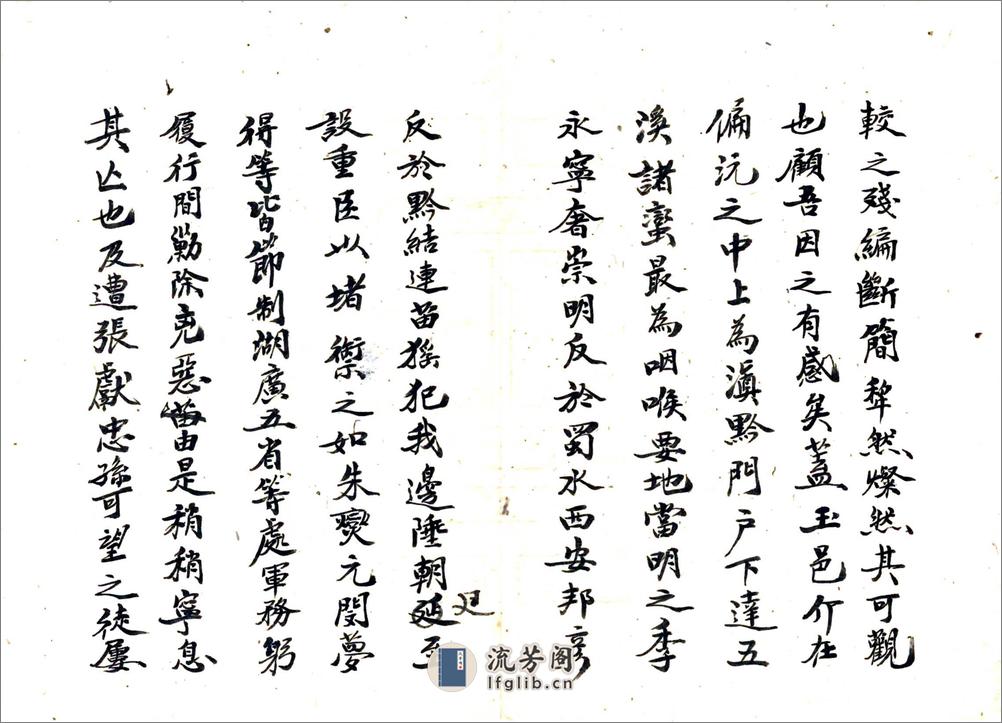 較之殘編斷簡犂然燦然其可觀
也顧吾因之有感矣蓋玉邑介在
偏沅之中上為滇黔門户下達五
溪諸蠻最為咽喉要地當明之季
永寧奢崇明反於蜀水西安邦彥
反於黔結連苗猺犯我邊陲朝延至
廷
設重臣以堵禦之如朱燮元閔夢
得等皆節制湖廣五省等處軍務躬
履行間勦除兇惡苗由是稍稍寧息
其亾也及遭張獻忠孫可望之徒屢
流芳阁
lfglib.cn